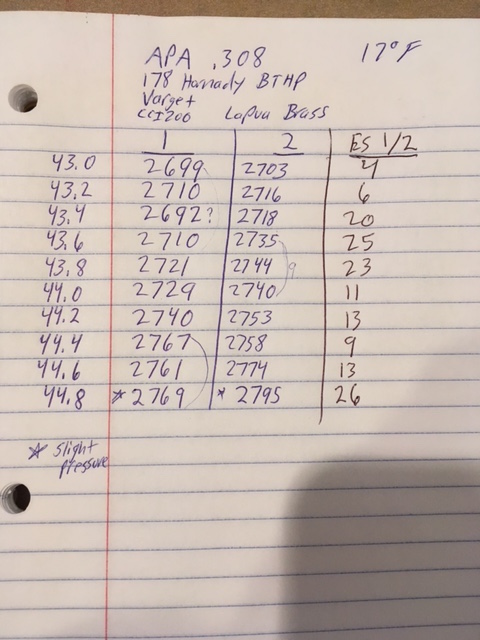 APA .308 17°F
178 Hornady BTHP
Varget
CCI200 Lapua Brass
1 2 ES 1/2
43.0 2699 2703 4
43.2 2710 2716 6
43.4 2692? 2718 20
43.6 2710 2735 25
43.8 2721 2744 23
9
44.0 2729 2740 11
44.2 2740 2753 13
44.4 2767 2758 9
44.6 2761 2774 13
44.8 *2769 *2795 26
* Slight
pressure